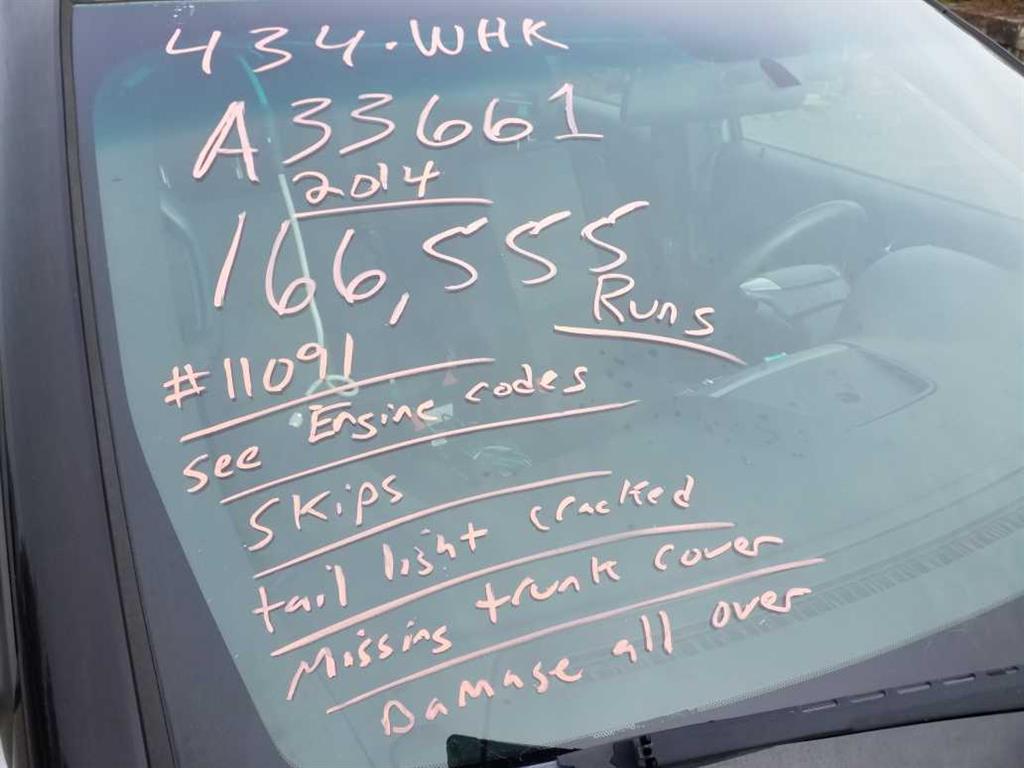 434·WHK
A33661
2014
166,555
Runs
#11091
see Engine codes
Skips
tail light cracked
Missing trunk cover
Damage all over